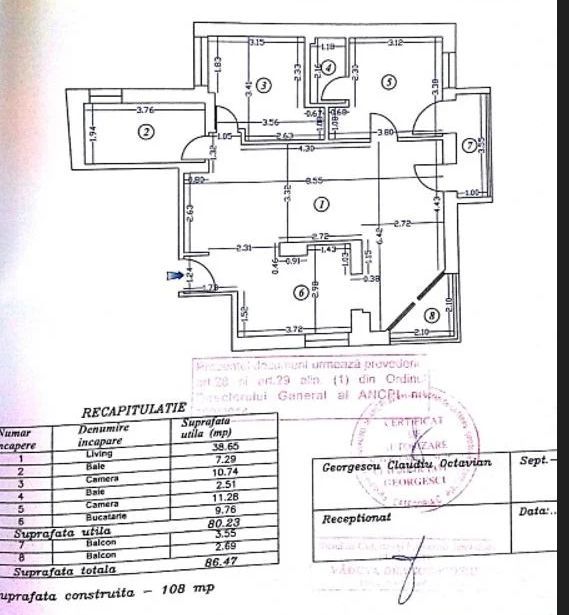 3.15
1.18
3.12
1.83
3.41
2.33
2.16
2.33
3.38
3
4
5
3.76
1.94
2
3.56
2.63
1.05
1.32
3.80
7
3.55
1.00
4.30
0.80
8.55
3.32
1
2.63
2.72
4.43
2.72
6.42
2.31
0.46
0.91
1.43
1.03
1.15
0.38
1.24
6
2.98
1.52
3.72
2.10
2.10
8
Prezentul document urmează prevederile
art.28 si art.29 alin. (1) din Ordinul
Directorului General al ANCPI
RECAPITULATIE
Numar incapere Denumire incapare Suprafata utila (mp)
1 Living 38.65
2 Baie 7.29
3 Camera 10.74
4 Baie 2.51
5 Camera 11.28
6 Bucatarie 9.76
Suprafata utila 80.23
7 Balcon 3.55
8 Balcon 2.69
Suprafata totala 86.47
uprafata construita - 108 mp
CERTIFICAT
DE
AUTORIZARE
GEORGESCU
Georgescu Claudiu Octavian
Sept.
Receptionat
Data:..